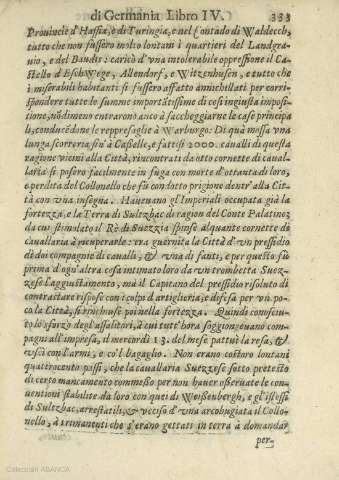 di Germania Libro IV. 333
Prouincie d'Hassia, e di Turingia, e nel Contado di Waldecch,
tutto che non fussero molto lontani i quartieri del Landgra-
uio, e del Baudis: caricò d'vna intolerabile oppressione il Ca-
stello d'EschWege, Allendorf, e Witzenhusen, e tutto che
i miserabili habitanti si fussero affatto annichellati per corri-
spondere tutte le summe importātissime di cosi ingiusta imposi-
tione, nōdimeno entrarono anco à saccheggiarne le case principa
li, conducēdone le reppresaglie à Warburgo: Di quà mossa vna
lunga scorreria sin'à Casselle, e fattisi 2000. caualli di questa
ragione vicini alla Città, rincontrati da otto cornette di caual-
laria si posero facilmente in fuga con morte d'ottanta di loro,
e perdita del Collonello che fù condotto prigione dentr'alla Cit-
tà con vna insegna. Haueuano gl'Imperiali occupata già la
fortezza, e la Terra di Sultzbac di ragion del Conte Palatino;
da cui stimolato il Rè di Suezzia spinse alquante cornette di
cauallaria à recuperarle: era guernita la Città d'vn pressidio
di doi compagnie di caualli, & vna di fanti, e per questo fù
prima d'ogn'altra cosa intimato loro da vn trombetta Suez-
zese l'aggiustamento, ma il Capitano del pressidio risoluto di
contrastare rispose con i colpi d'artiglieria; e difesa per vn po-
co la Città, si rinchiuse poi nella fortezza. Quindi conosciu-
to lo sforzo degl'assalitori, à cui tutt'hora soggiongeuano com-
pagni all'impresa, il mercordì 13. del mese pattuì la resa, &
vscì con l'armi, e co'l bagaglio. Non erano costoro lontani
quattrocento passi, che la cauallaria Suezzese sotto pretesto
di certo mancamento commesso per non hauer osseruate le con-
uentioni stabilite da loro con quei di Weißenbergh, e gl'istessi
di Sultzbac, arrestatili, & vcciso d'vna arcobugiata il Collo-
nello, à i rimanenti che s'erano gettati in terra à domandar
per-
Colección ABANCA